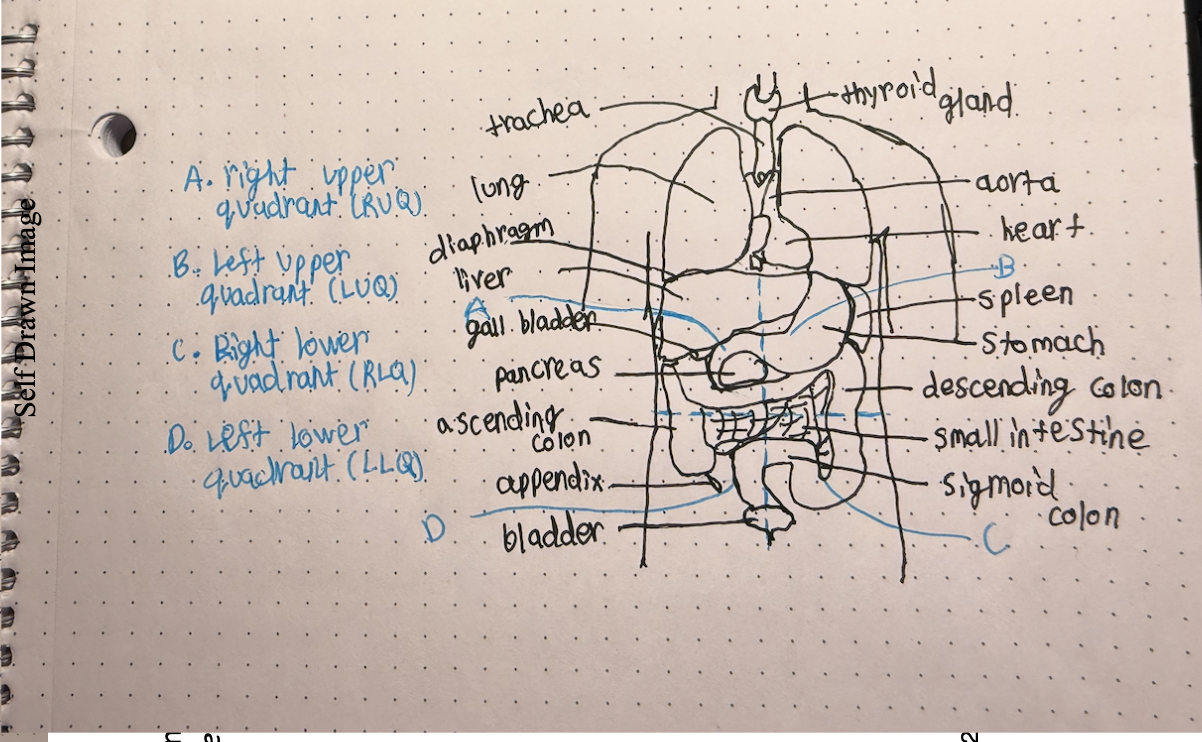 Self Drawn Image
A. right upper
quadrant (RUQ).
B. Left upper
quadrant (LUQ)
C. Right lower
quadrant (RLQ)
D. Left lower
quadrant (LLQ)
trachea
lung
diaphragm
liver
A
gall bladder
pancreas
ascending
colon
appendix
D
bladder
thyroid
gland
aorta
heart
B
spleen
stomach
descending colon
small intestine
sigmoid
colon
C